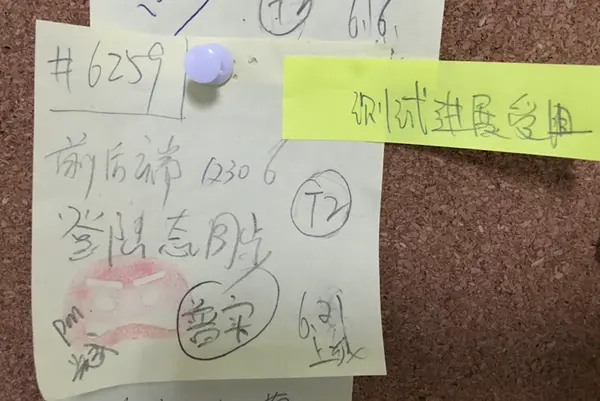 6.16
#6259
测试进展受阻
前后端12306
T2
登陆态同步
6.21
上线
pm